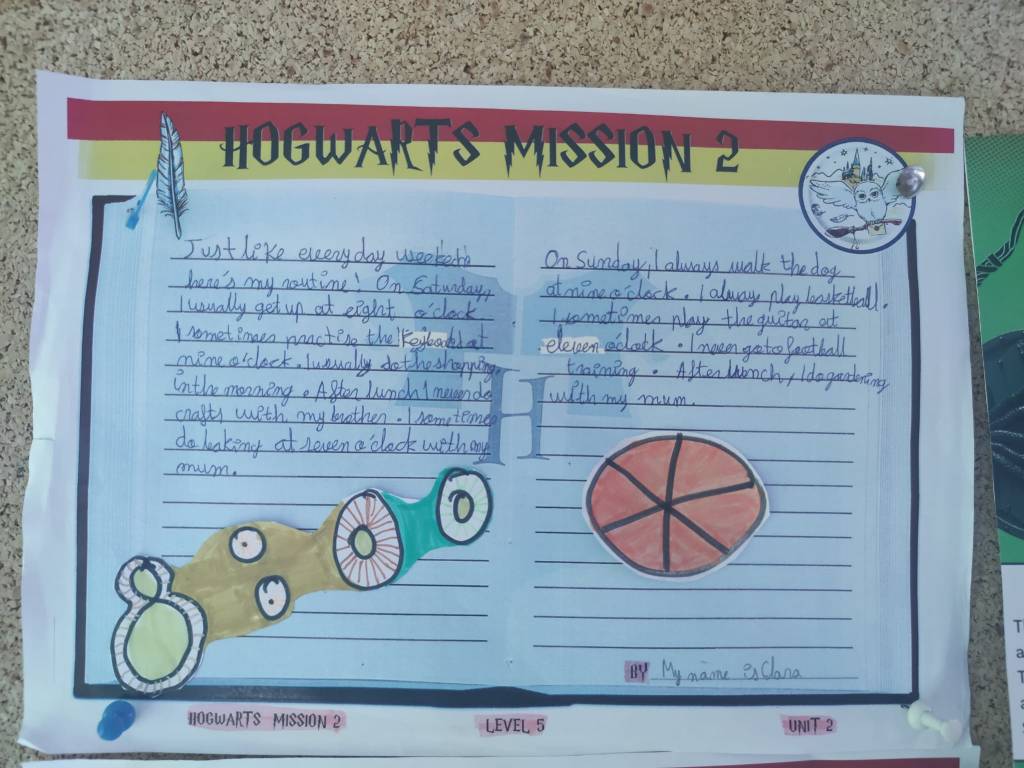 HOGWARTS MISSION 2
Just like everyday weekeds
here's my routine! On Saturday,
I usually get up at eight o'clock
I sometimes practise the Keyboard at
nine o'clock. I usually do the shopping
in the morning. After lunch I never do
crafts with my brother. I sometimes
do baking at seven o'clock with my
mum.
On Sunday, I always walk the dog
at nine o'clock. I always play basketball.
I sometimes play the guitar at
eleven o'clock. I never go to football
training. After lunch, I do gardening
with my mum.
BY My name is Clara
HOGWARTS MISSION 2 LEVEL 5 UNIT 2